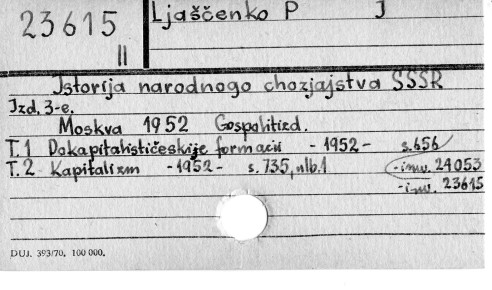 23615
II
Ljaščenko P I
Istorija narodnogo chozjajstva SSSR
Izd. 3-e.
Moskva 1952 Gospolitizd.
T.1 Dokapitalističeskije formacii - 1952 - s.656
T.2 Kapitalizm - 1952 - s. 735, nlb.1 - inw. 24053
- inw. 23615
DUJ. 393/70. 100 000.